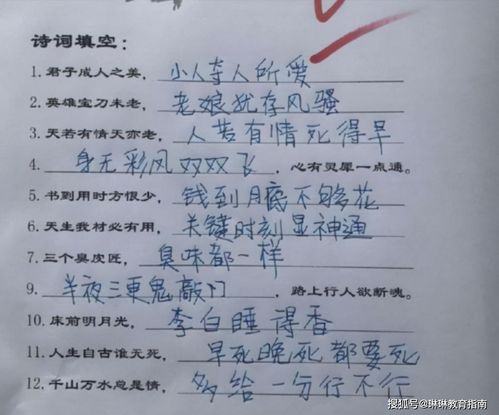 诗词填空：
1.君子成人之美，小人夺人所爱
2.英雄宝刀未老，老娘犹存风骚
3.天若有情天亦老，人若有情死得早
4.身无彩凤双双飞，心有灵犀一点通。
5.书到用时方恨少，钱到月底不够花
6.天生我材必有用，关键时刻显神通
7.三个臭皮匠，臭味都一样
9.半夜三更鬼敲门，路上行人欲断魂。
10.床前明月光，李白睡得香
11.人生自古谁无死，早死晚死都要死
12.千山万水总是情，多给一分行不行
搜狐号@琳琳教育指南